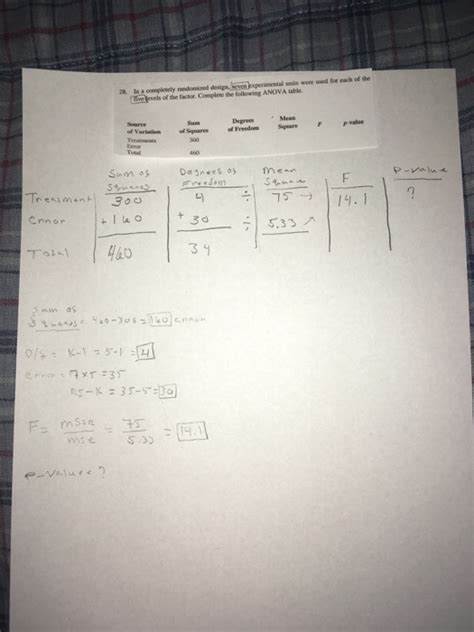 28. In a completely randomized design, seven experimental units were used for each of the
five levels of the factor. Complete the following ANOVA table.
Source of Variation Sum of Squares Degrees of Freedom Mean Square F p-value
Treatments 300
Error
Total 460
Sum of Squares Degrees of Freedom Mean Square F P-value
Treatment 300 4 ÷ 75 → 14.1 ?
Error +160 + 30 ÷ 5.33 ↗
Total 460 34
Sum of
Squares = 460-300 = 160 error
= K-1 = 5-1 = 4
error = 7x5 = 35
35-5 = 30
F = = 75 / 5.33 = 14.1
mse
P-value = ?